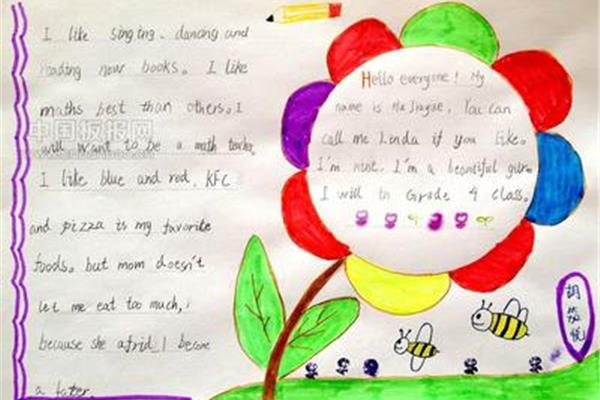 I like singing、dancing and
reading new books。I like
maths best than others。I
will want to be a math teacher。
I like blue and red. KFC
and pizza is my favorite
foods。but mom doesn't
let me eat too much,
because she afrid I become
a fater.
Hello everyone! My
name is Hu . You can
call me Linda if you like。
I'm nine. I'm a beautiful
I will in Grade 4 class。
胡 悦
中国板报网